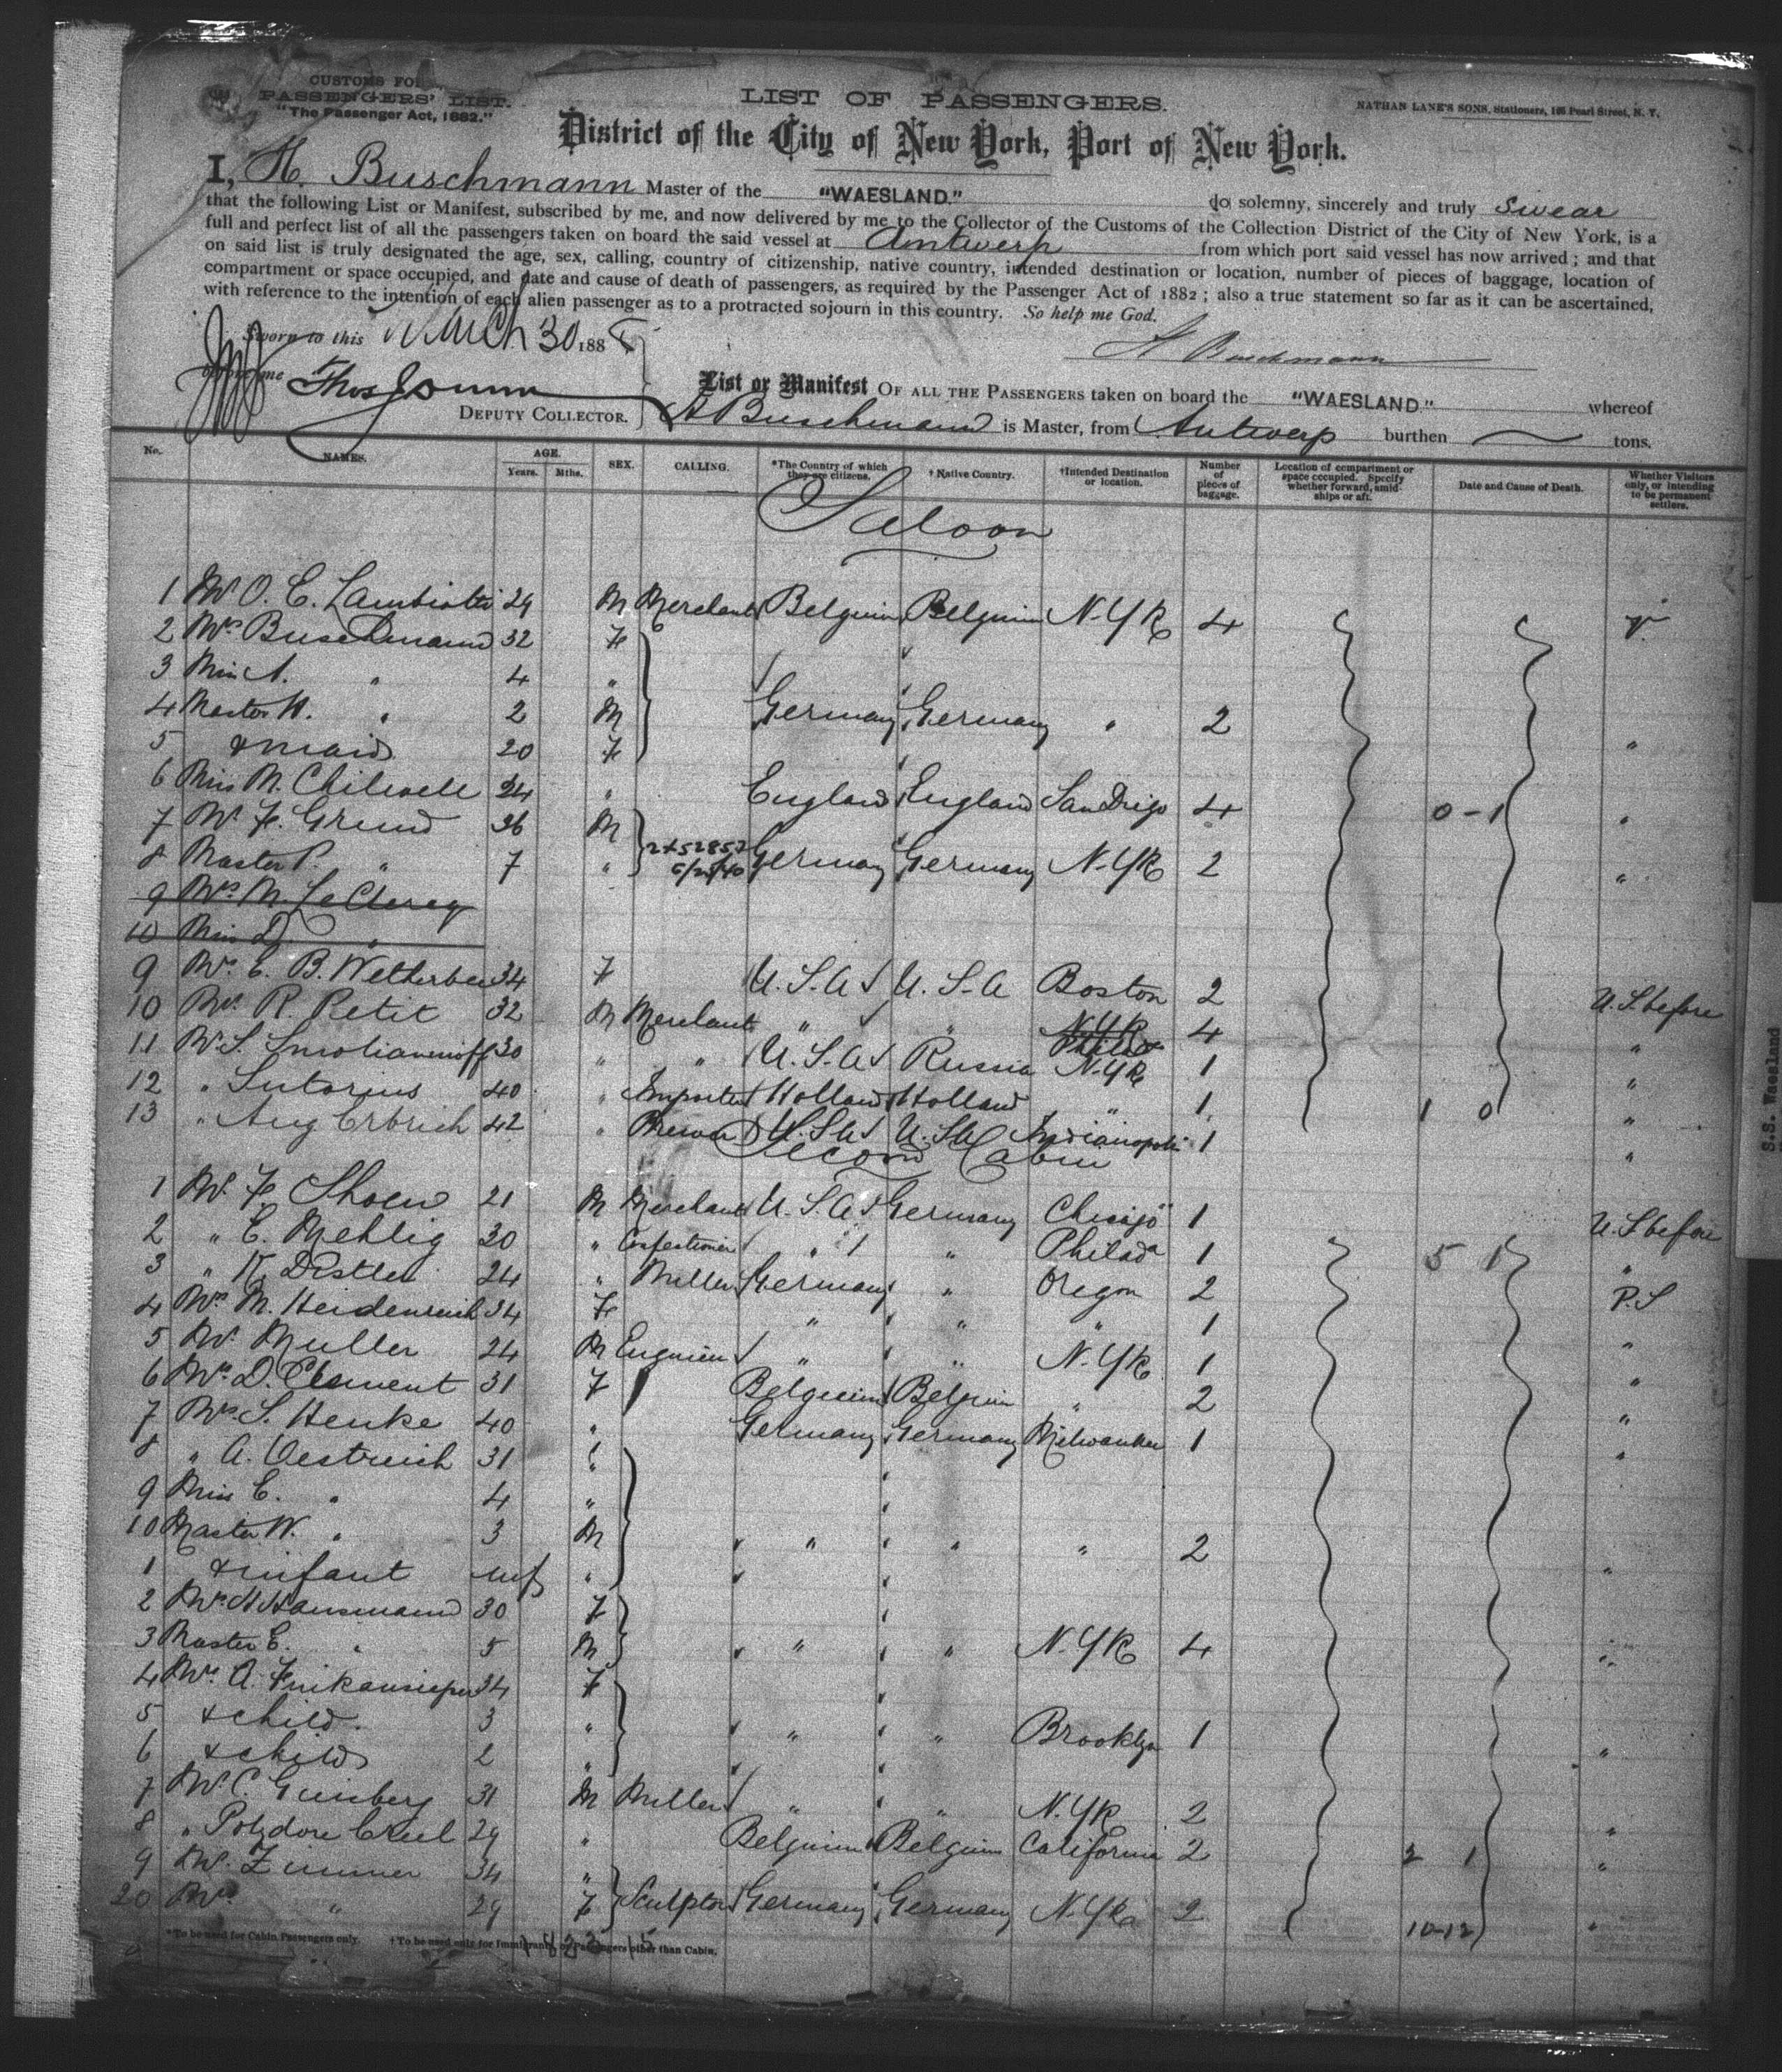 CUSTOMS FO
PASSENGERS' LIST.
"The Passenger Act, 1882."
LIST OF PASSENGERS.
NATHAN LANE'S SONS, Stationers, 166 Pearl Street, N. Y.
District of the City of New York, Port of New York.
I, H. Buschmann Master of the "WAESLAND." do solemny, sincerely and truly swear
that the following List or Manifest, subscribed by me, and now delivered by me to the Collector of the Customs of the Collection District of the City of New York, is a
full and perfect list of all the passengers taken on board the said vessel at Antwerp from which port said vessel has now arrived; and that
on said list is truly designated the age, sex, calling, country of citizenship, native country, intended destination or location, number of pieces of baggage, location of
compartment or space occupied, and date and cause of death of passengers, as required by the Passenger Act of 1882; also a true statement so far as it can be ascertained,
with reference to the intention of each alien passenger as to a protracted sojourn in this country. So help me God.
Sworn to this March 30 188
H Buschmann
before me Thos
DEPUTY COLLECTOR.
List or Manifest OF ALL THE PASSENGERS taken on board the "WAESLAND." whereof
H Buschmann is Master, from Antwerp burthen tons.
No. NAMES. AGE. Years. Mths. SEX. CALLING. *The Country of which they are citizens. †Native Country. †Intended Destination or location. Number of pieces of baggage. Location of compartment or space occupied. Specify whether forward, amidships or aft. Date and Cause of Death. Whether Visitors only, or intending to be permanent settlers.
Saloon
1 Mr O. E. Lambiotte 29 M Merchant Belgium Belgium N-YK 4 V
2 Mrs Buschmann 32 Fe
3 Miss A. " 4 "
4 Master H. " 2 M Germany Germany " 2
5 & maid 20 Fe "
6 Miss M. Chilwell 24 " England England San Diego 4 0-1 "
7 Mr. F. Grund 36 M
8 Master P. " 7 " Germany Germany N-YK 2 "
9 Mrs M. LeClercq
10 Miss D. "
9 Mrs. E. B. Wetherbee 34 F U.S.A U.S.A Boston 2 U.S before
10 Mr. R. Petit 32 M Merchant " " N.YK 4 "
11 Mr S. 30 " " U.S.A Russia N.YK 1 "
12 " Sutorius 40 " Importer Holland Holland " 1 1 0 "
13 " Aug Erbrich 42 " Brewer U.S.A U.S.A Indianapolis 1 "
Second Cabin
1 Mr. F. Shoen 21 M Merchant U.S.A Germany Chicago 1 U.S before
2 " E. Mehlig 30 " Confectioner " " Philada 1 5 1 "
3 " K. Distler 24 " Miller Germany " Oregon 2 P.S
4 Mrs M. Heidenreich 34 Fe " " " 1 "
5 Mr. Muller 24 M " " N.YK 1 "
6 Mrs D. Clement 31 F Belgium Belgium " 2 "
7 Mrs. S. Henke 40 " Germany Germany Milwaukee 1 "
8 " A. Oestreich 31 "
9 Miss E. " 4 "
10 Master W. " 3 M " " " 2
1 & infant inf " "
2 Mrs H Hausmann 30 F
3 Master E. " 5 M " " N.YK 4 "
4 Mrs. A. 34 F
5 & child. 3 " " " Brooklyn 1
6 & child 2 " "
7 Mr C. 31 M Miller " " N.YK 2
8 " Polydore Creel 29 " Belgium Belgium California 2 2 1 "
9 Mr. Zimmer 34 "
20 Mrs " 29 F Sculptor Germany Germany N.YK 2 10-12 "
*To be used for Cabin Passengers only. †To be used only for Immigrants or Passengers other than Cabin.
S.S. Waesland